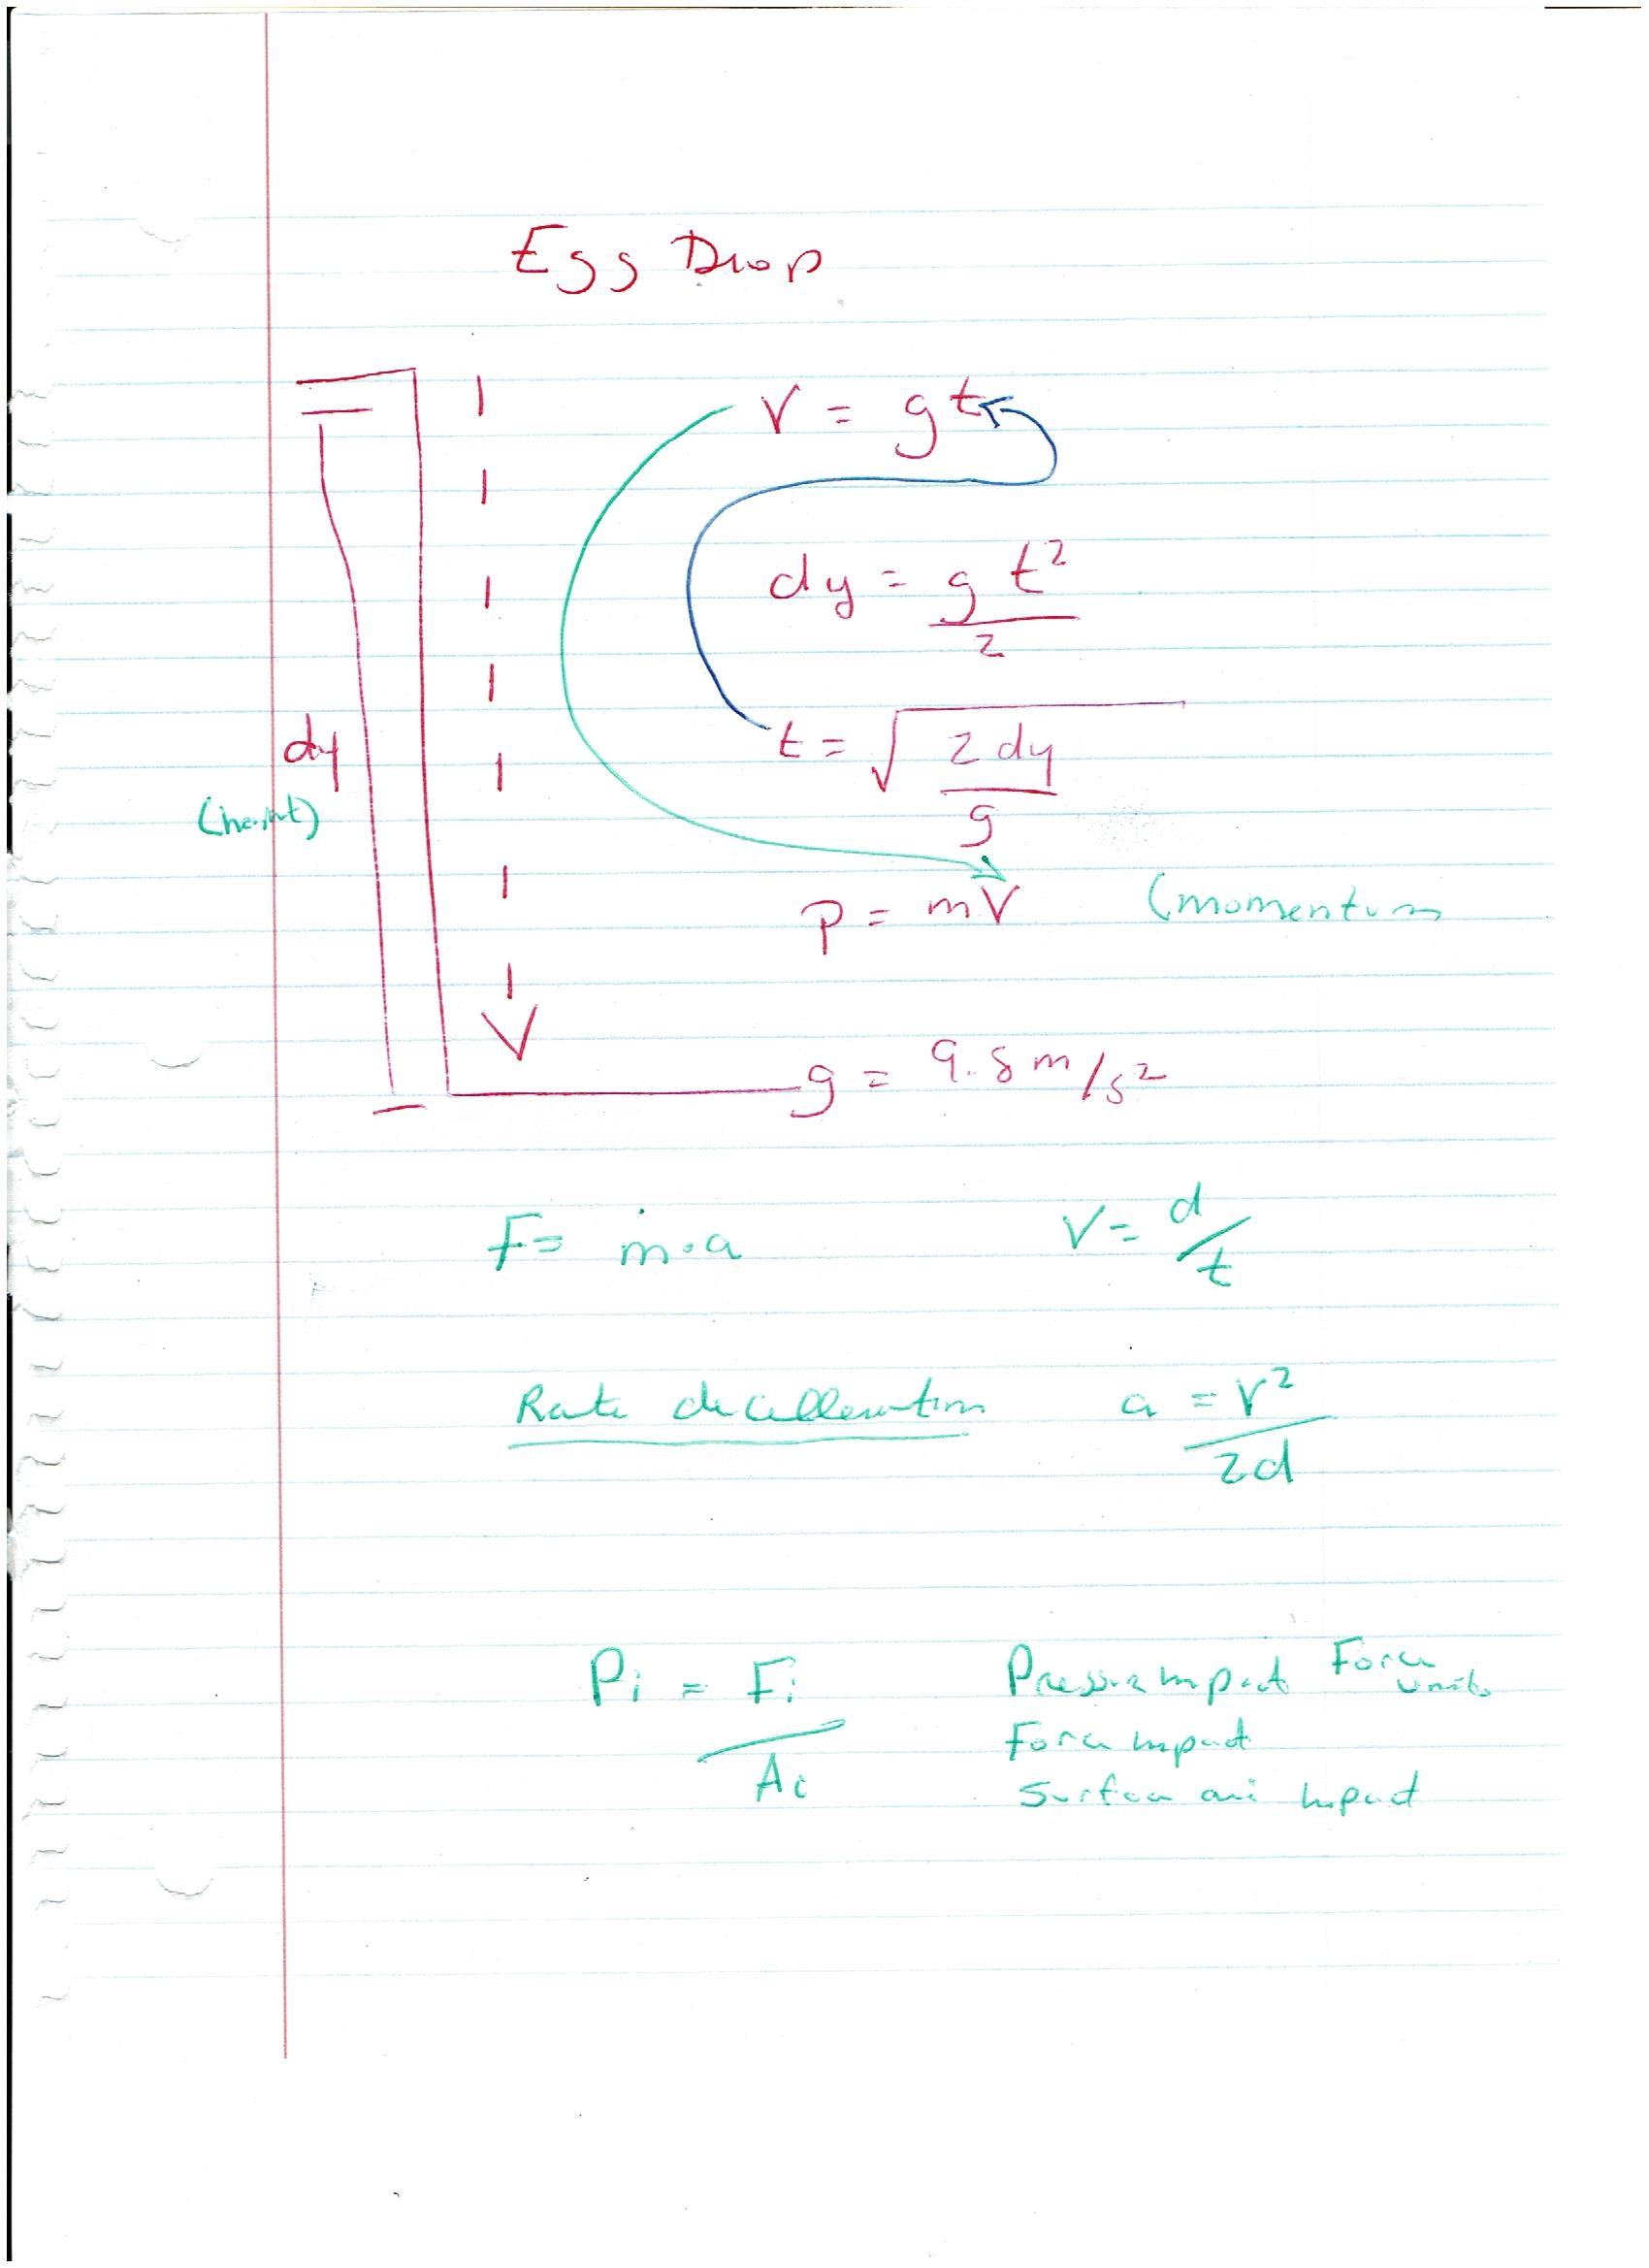 Egg Drop
v = gt
dy = g t²
2
t = √ 2 dy
g
dy
(height)
p = mv (momentum
g = 9.8 m/s²
F = m·a v = d/t
Rate decelleration a = v²
2d
Pi = Fi Pressure Impact Force units
Force Impact
Ai
Surface are Impact